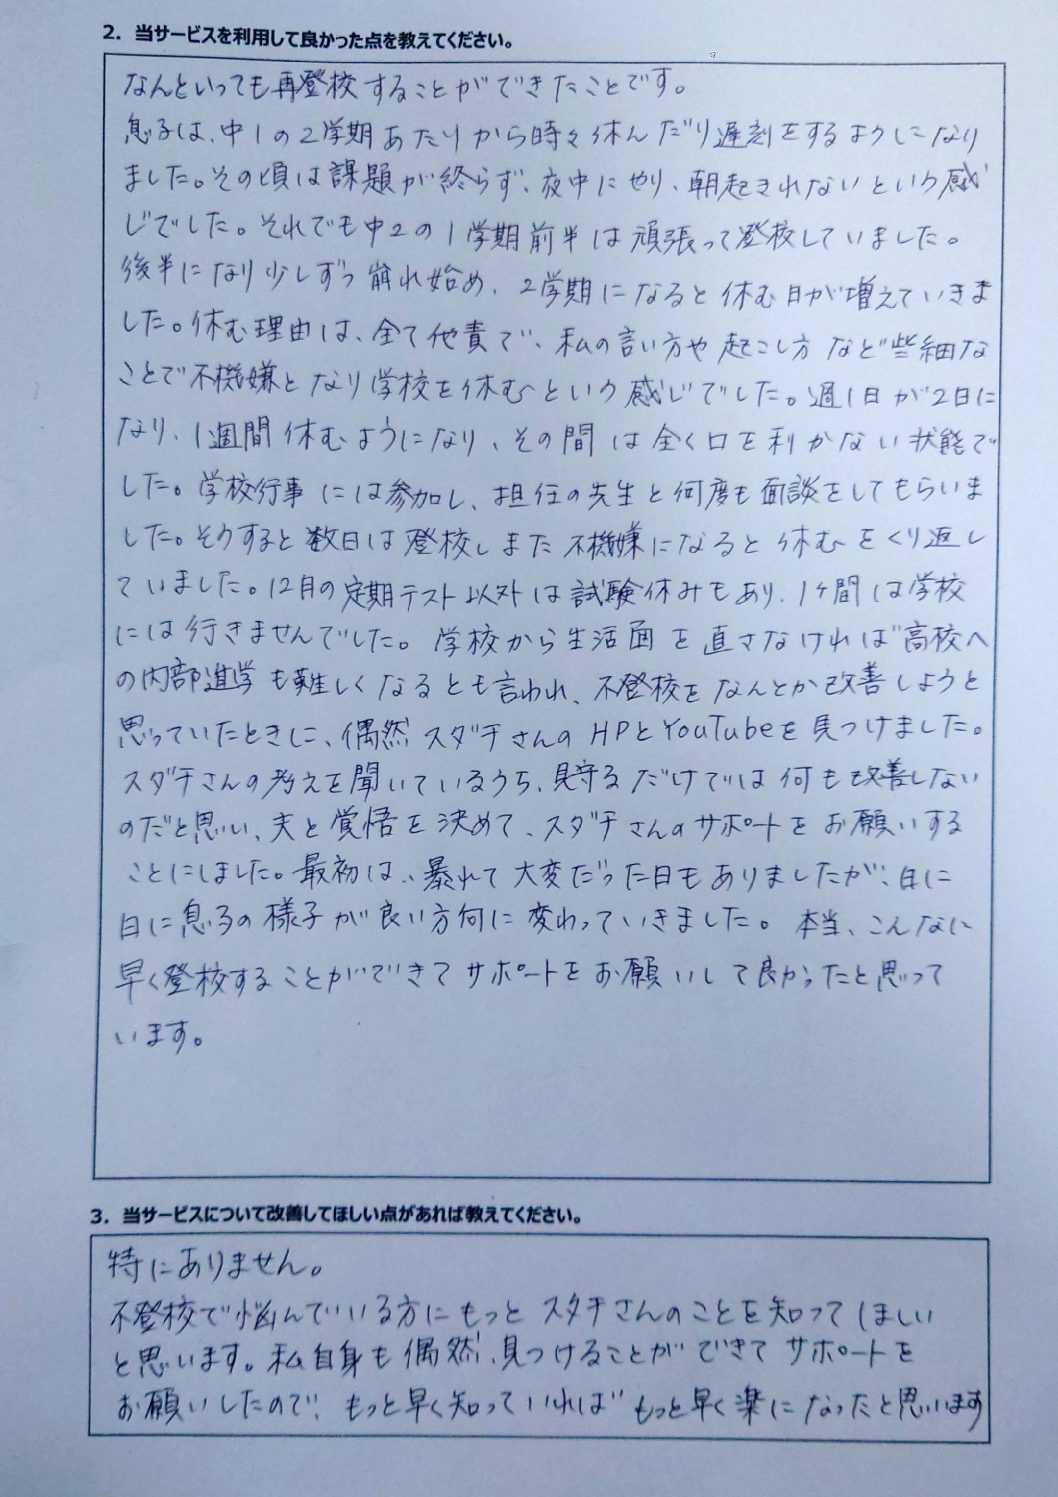 2. 当サービスを利用して良かった点を教えてください。
なんといっても再登校することができたことです。
息子は、中1の2学期あたりから時々休んだり遅刻をするようになり
ました。その頃は課題が終らず、夜中にやり、朝起きれないという感
じでした。それでも中2の1学期前半は頑張って登校していました。
後半になり少しずつ崩れ始め、2学期になると休む日が増えていきま
した。休む理由は、全て他責で、私の言い方や起こし方など些細な
ことで不機嫌となり学校を休むという感じでした。週1日が2日に
なり、1週間休むようになり、その間は全く口を利かない状態で
した。学校行事には参加し、担任の先生と何度も面談をしてもらいま
した。そうすると数日は登校しまた不機嫌になると休むをくり返し
ていました。12月の定期テスト以外は試験休みもあり、1ケ間は学校
には行きませんでした。学校から生活面を直さなければ高校へ
の内部進学も難しくなるとも言われ、不登校をなんとか改善しようと
思っていたときに、偶然スダチさんのHPとYouTubeを見つけました。
スダチさんの考えを聞いているうち、見守るだけでは何も改善しない
のだと思い、夫と覚悟を決めて、スダチさんのサポートをお願いする
ことにしました。最初は、暴れて大変だった日もありましたが、日に
日に息子の様子が良い方何に変わっていきました。本当、こんなに
早く登校することができてサポートをお願いして良かったと思って
います。
3. 当サービスについて改善してほしい点があれば教えてください。
特にありません。
不登校で悩んでいる方にもっとスダチさんのことを知ってほしい
と思います。私自身も偶然、見つけることができてサポートを
お願いしたので、もっと早く知っていればもっと早く楽になったと思います